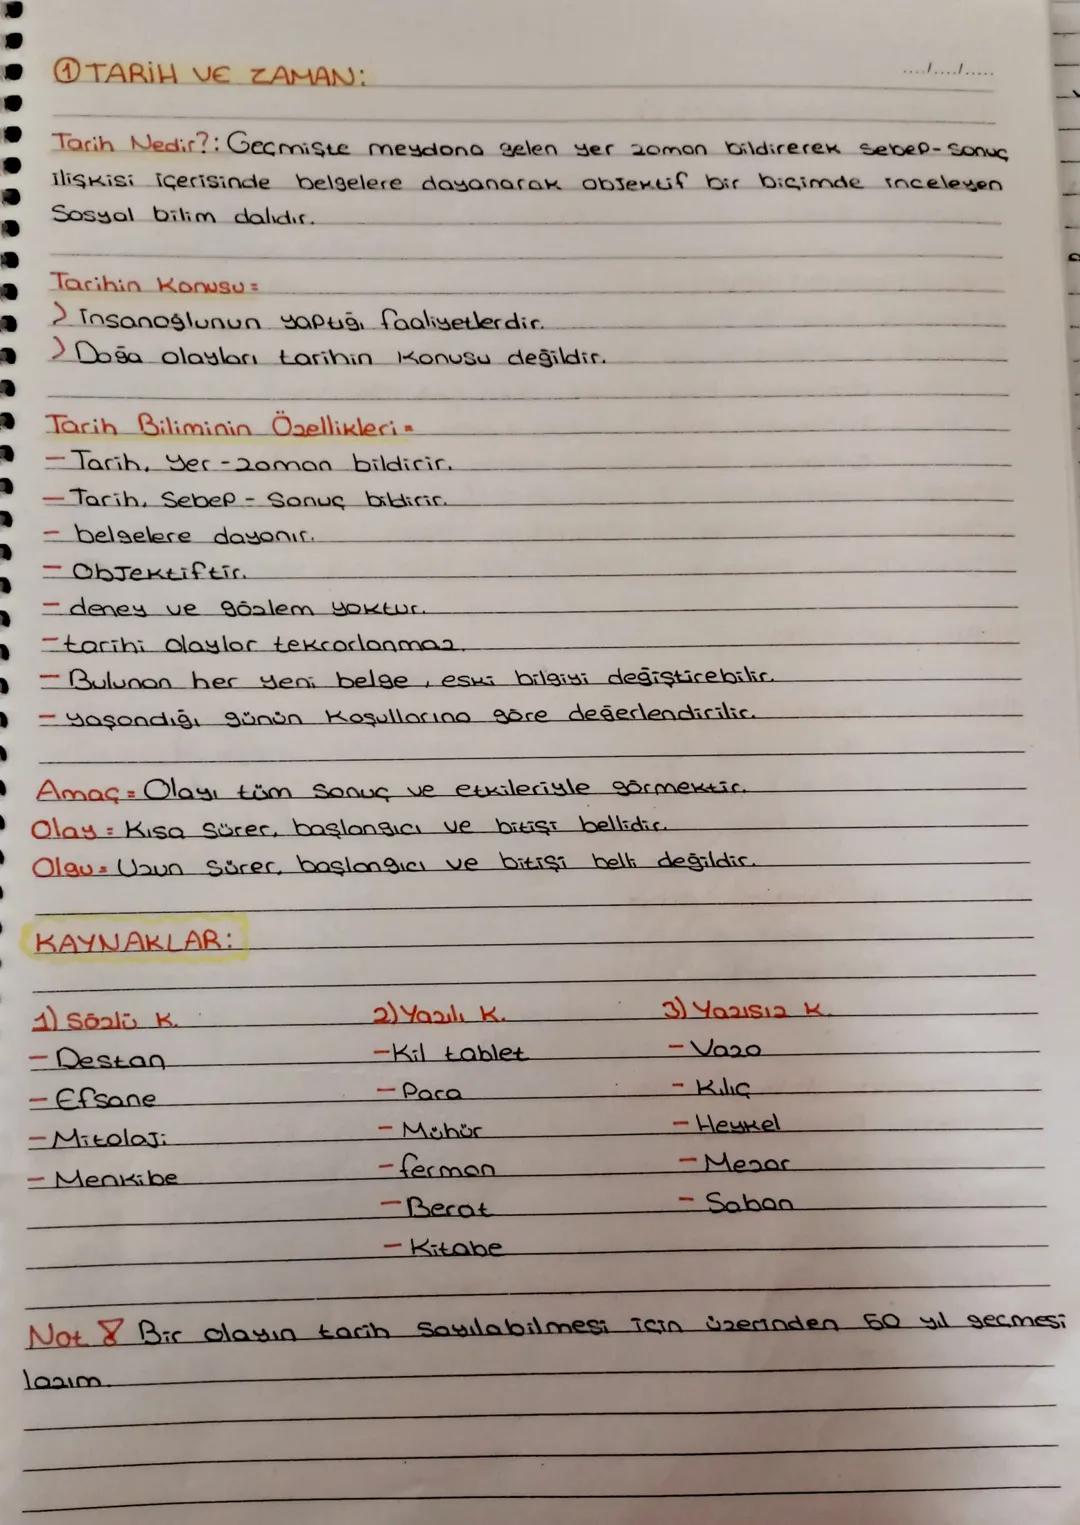 ① TARİH VE ZAMAN:
..../..../.....
Tarih Nedir?: Geçmişte meydana gelen yer zaman bildirerek sebep-sonuç
ilişkisi içerisinde belgelere dayanarak objektif bir biçimde inceleyen
Sosyal bilim dalıdır.
Tarihin Konusu =
> İnsanoğlunun yaptığı faaliyetlerdir.
> Doğa olayları tarihin konusu değildir.
Tarih Biliminin Özellikleri =
- Tarih, yer - zaman bildirir.
- Tarih, Sebep - Sonuç bildirir.
- belgelere dayanır.
- Objektiftir.
- deney ve gözlem yoktur.
- tarihi olaylar tekrarlanmaz.
- Bulunan her yeni belge, eski bilgiyi değiştirebilir.
- yaşandığı günün koşullarına göre değerlendirilir.
Amaç = Olayı tüm sonuç ve etkileriyle görmektir.
Olay = Kısa sürer, başlangıcı ve bitişi bellidir.
Olgu = Uzun sürer, başlangıcı ve bitişi belli değildir.
KAYNAKLAR:
1) Sözlü K.
- Destan
- Efsane
- Mitoloji
- Menkibe
2) Yazılı K.
- Kil tablet
- Para
- Mühür
- ferman
- Berat
- Kitabe
3) Yazısız K.
- Vazo
- Kılıç
- Heykel
- Mezar
- Saban
Not 8 Bir olayın tarih sayılabilmesi için üzerinden 50 yıl geçmesi
lazım.